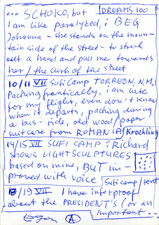 ... SCHOKO, but DREAMS 100
I am like paralyzed, i BEG
Johanna - she stands on the moun-
tain side of the street - to stretch
a hand and pull me towards
her / the curb of the street
10/11 VII SufiCamp TORREON, N.M.
Packing frantically, i am late
for my flight, even don't know
when it departs, packing during
a bus-ride, old wood/paper
suitcase from ROMAN (A) Krochling
14/15 VII SUFI CAMP: Richard
shows LIGHTSCULPTURES
based on mine, BUT im-
proved with voice SufiCamp / tent
18/19 VII I have into proof
about the PRESIDENT'S (or an
important